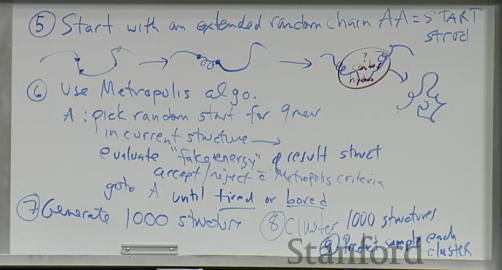 ⑤ Start with an extended random chain AA = START
struct
⑥ Use Metropolis algo.
A : pick random start for 9mer
in current structure →
evaluate "fake energy" of result struct
accept/reject c̄ Metropolis criteria
goto A until tired or bored
⑦ Generate 1000 structure
⑧ Cluster 1000 structures
⑨ sample each
cluster
Stanford